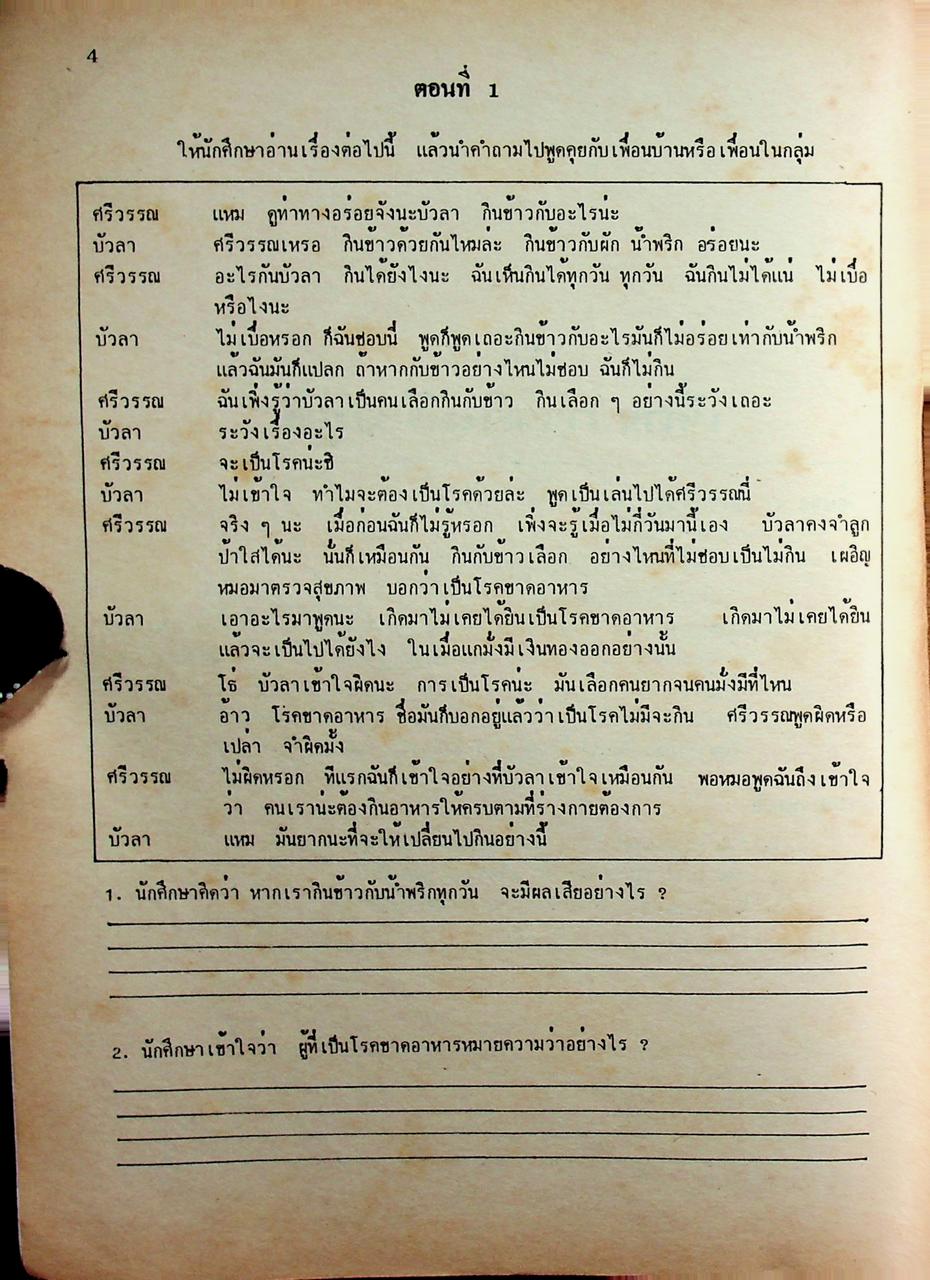 4
ตอนที่ 1
ให้นักศึกษาอ่านเรื่องต่อไปนี้ แล้วนำคำถามไปพูดคุยกับเพื่อนบ้านหรือเพื่อนในกลุ่ม
ศรีวรรณ แหม ดูท่าทางอร่อยจังนะบัวลา กินข้าวกับอะไรน่ะ
บัวลา ศรีวรรณเหรอ กินข้าวด้วยกันไหมล่ะ กินข้าวกับผัก น้ำพริก อร่อยนะ
ศรีวรรณ อะไรกันบัวลา กินได้ยังไงนะ ฉันเห็นกินได้ทุกวัน ทุกวัน ฉันกินไม่ได้แน่ ไม่เบื่อ
หรือไงนะ
บัวลา ไม่เบื่อหรอก ก็ฉันชอบนี่ พูดก็พูดเถอะกินข้าวกับอะไรมันก็ไม่อร่อยเท่ากับน้ำพริก
แล้วฉันมันก็แปลก ถ้าหากกับข้าวอย่างไหนไม่ชอบ ฉันก็ไม่กิน
ศรีวรรณ ฉันเพิ่งรู้ว่าบัวลาเป็นคนเลือกกินกับข้าว กินเลือก ๆ อย่างนี้ระวังเถอะ
บัวลา ระวังเรื่องอะไร
ศรีวรรณ จะเป็นโรคน่ะซิ
บัวลา ไม่เข้าใจ ทำไมจะต้องเป็นโรคด้วยล่ะ พูดเป็นเล่นไปได้ศรีวรรณนี่
ศรีวรรณ จริง ๆ นะ เมื่อก่อนฉันก็ไม่รู้หรอก เพิ่งจะรู้เมื่อไม่กี่วันมานี้เอง บัวลาคงจำลูก
ป้าใส่ได้นะ นั่นก็เหมือนกัน กินกับข้าวเลือก อย่างไหนที่ไม่ชอบเป็นไม่กิน เผอิญ
หมอมาตรวจสุขภาพ บอกว่าเป็นโรคขาดอาหาร
บัวลา เอาอะไรมาพูดนะ เกิดมาไม่เคยได้ยินเป็นโรคขาดอาหาร เกิดมาไม่เคยได้ยิน
แล้วจะเป็นไปได้ยังไง ในเมื่อแกมั่งมีเงินทองออกอย่างนั้น
ศรีวรรณ โธ่ บัวลาเข้าใจผิดนะ การเป็นโรคน่ะ มันเลือกคนยากจนคนมั่งมีที่ไหน
บัวลา อ้าว โรคขาดอาหาร ชื่อมันก็บอกอยู่แล้วว่าเป็นโรคไม่มีจะกิน ศรีวรรณพูดผิดหรือ
เปล่า จำผิดมั้ง
ศรีวรรณ ไม่ผิดหรอก ทีแรกฉันก็เข้าใจอย่างที่บัวลาเข้าใจเหมือนกัน พอหมอพูดฉันถึงเข้าใจ
ว่า คนเราน่ะต้องกินอาหารให้ครบตามที่ร่างกายต้องการ
บัวลา แหม มันยากนะที่จะให้เปลี่ยนไปกินอย่างนี้
1. นักศึกษาคิดว่า หากเรากินข้าวกับน้ำพริกทุกวัน จะมีผลเสียอย่างไร ?
2. นักศึกษาเข้าใจว่า ผู้ที่เป็นโรคขาดอาหารหมายความว่าอย่างไร ?